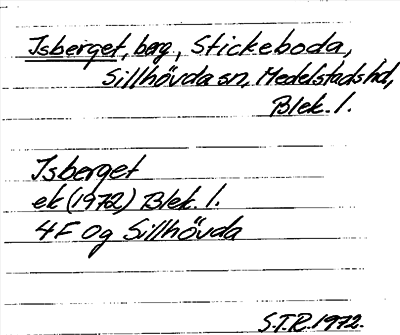 Isberget, berg, Stickeboda,
Sillhövda sn, Medelstads hd,
Blek. l.
Isberget
ek (1972) Blek. l.
4F 0g Sillhövda
S.T.R. 1972.